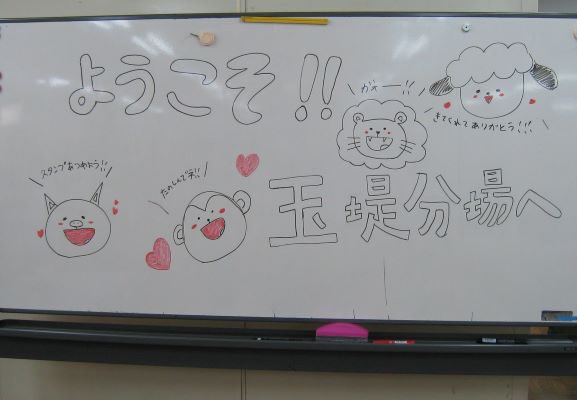 ようこそ!!
ガオー!!
きてくれてありがとう!!!
スタンプあつめよう!!
たのしんでネ!!
玉堤分場へ